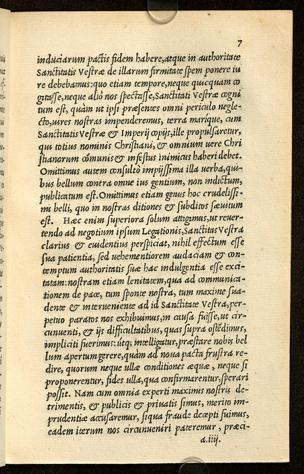 7
induciarum pactis fidem habere, atque in authoritate
Sanctitatis Vestræ de illarum firmitate spem ponere iu
re debebamus: quo etiam tempore, neque quicquam co
gitasse, neque aliò nos spectasse, Sanctitati Vestræ cogni
tum est, quàm ut ipsi præsentes omni periculo negle-
cto, uires nostras impenderemus, terra marique, cum
Sanctitatis Vestræ & Imperij copijs, ille propulsaretur,
qui totius nominis Christiani, & omnium uere Chri
stianorum cõmunis & infestus inimicus haberi debet.
Omittimus autem consulto impijssima illa uerba, qui-
bus bellum contra omne ius gentium, non indictum,
publicatum est. Omittimus etiam genus hoc crudelissi-
mi belli, quo in nostras ditiones & subditos sæuitum
est. Hæc enim superiora solum attigimus, ut reuer-
tendo ad negotium ipsum Legationis, Sanctitas Vestra
clarius & euidentius perspiciat, nihil effectum esse
sua patientia, sed uehementiorem audaciam & con-
temptum authoritatis suæ hac indulgentia esse exci-
tatam: nostram etiam lenitatem, qua ad communica-
tionem de pace, tum sponte nostra, tum maxime sua-
dente & interueniente ad id Sanctitate Vestra, per-
petuo paratos nos exhibuimus, in causa fuisse, ut cir-
cunuenti, & ijs difficultatibus, quas supra ostẽdimus,
impliciti fuerimus: ueq; intelligatur, præstare nobis bel
lum apertum gerere, quàm ad noua pacta frustra re-
dire, quorum neque ullæ conditiones æquæ, neque si
proponerentur, fides ulla, qua confirmarentur, sperari
possit. Nam cum omnia experti maximis nostris de-
trimentis, & publicis & priuatis simus, merito im-
prudentiæ accusaremur, si qua fraude decepti fuimus,
eadem iterum nos circunueniri pateremur, præci-
a.iiij.